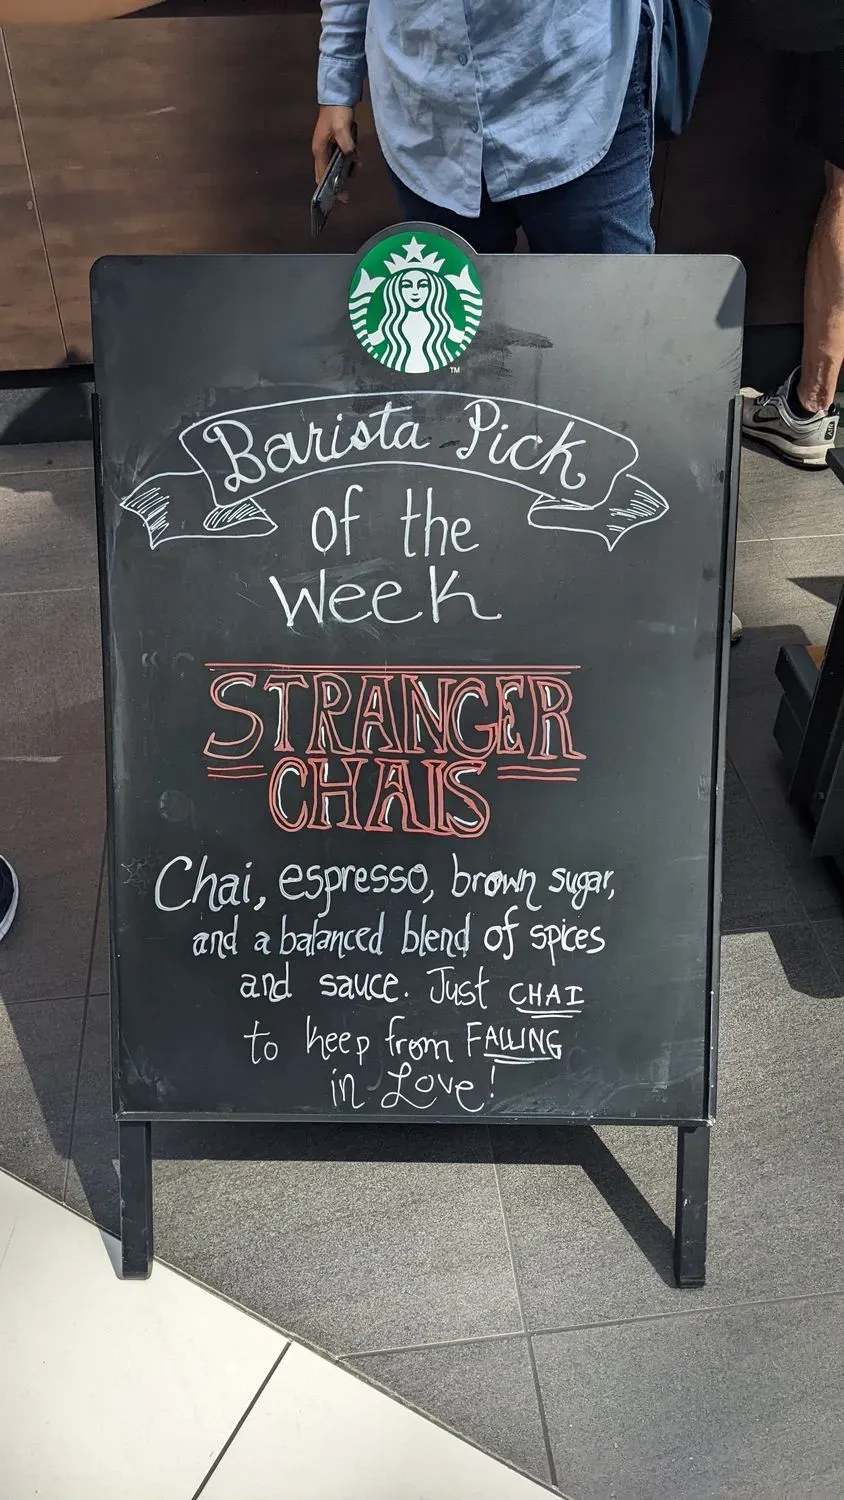 TM
Barista Pick
of the
Week
STRANGER
CHAIS
Chai, espresso, brown sugar,
and a balanced blend of spices
and sauce. Just CHAI
to keep from FALLING
in Love!